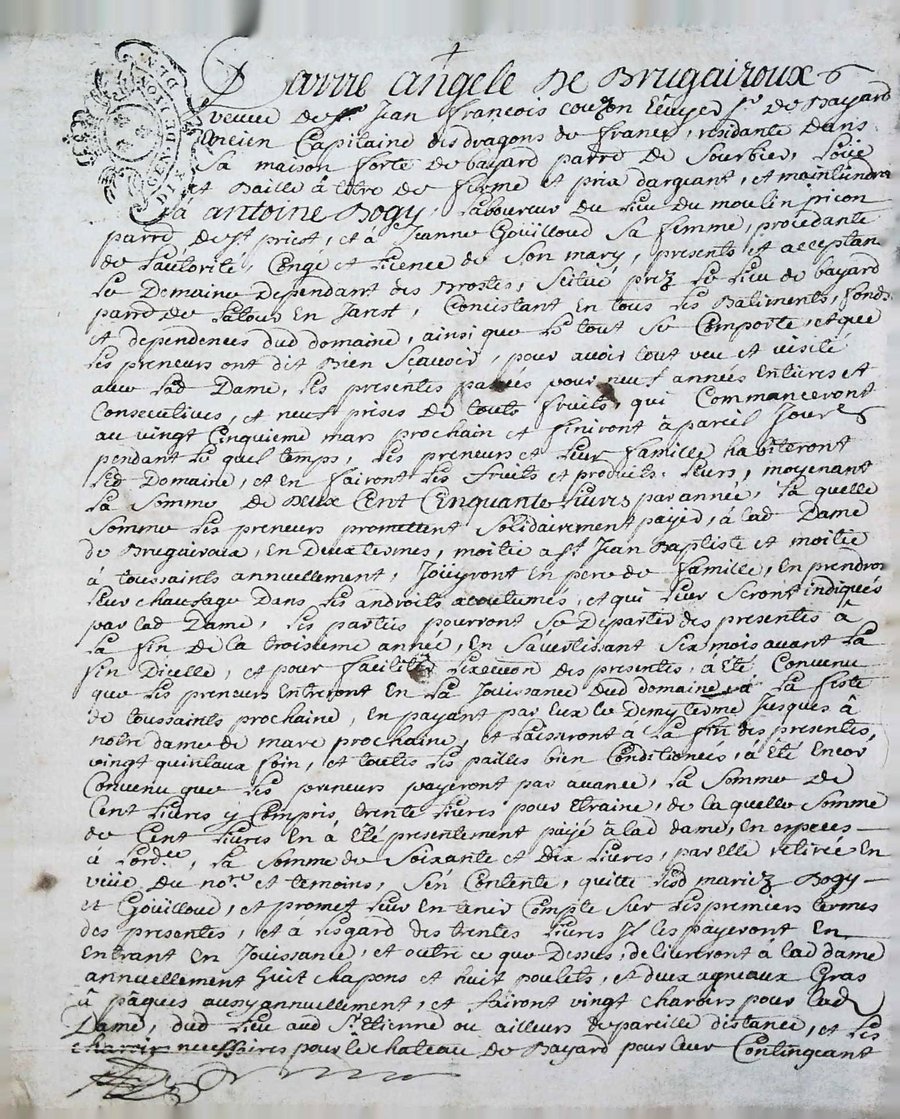 Marie angele De Brugairoux
veuve de Sr Jean François couzon Ecuyer Sr de Bayard
ancien Capitaine des dragons de france, residante dans
Sa maison forte de bayard parre de Sourbier, Loüe
et Baille à titre de ferme et prix dargeant, et maintiendra
à antoine Bogy, Laboureur du Lieu du moulin picon
parre de St priest, et à Jeanne Goüilloud Sa femme, procedante
de Lautorité, Congé et Licence de Son mary, presents et acceptan
Le Domaine dependant des Brostes, Scitué prez Le Lieu de bayard
parre de Latour En Jarest, Concistant En tous Les Batiments, fonds
et dependences dud domaine, ainsi que Le tout Se Comporte, et que
Les preneurs ont dit Bien Scavoir, pour avoir tout veu et visité
avec Lad Dame, Les presentes passées pour neuf années Entieres et
Consecutives, et neuf prises de touts fruits, qui Commanceront
au vingt Cinquieme mars prochain et finiront à pareil Jour
pendant Le quel temps, Les preneurs et Leur famille habiteront
Led Domaine, et En fairont Les fruits et produits Leurs, moyenant
La Somme de Deux Cent Cinquante Livres par année, La quelle
Somme Les preneurs promettent Solidairement payer, à Lad Dame
de Brugairoux, En Deux termes, moitié a St Jean Baptiste et moitié
à toussaints annuellement, Joüyront En pere de famille, En prendront
Leur chaufage Dans Les androits acoutumés, et qui Leur Seront indiqués
par Lad Dame, Les parties pourront Se Departir des presentes à
La fin de La troisieme année, En S'avertissant Six mois avant La
fin Dicelle, et pour faciliter L'execution des presentes, à été Convenu
que Les preneurs Entreront En La Jouissance dud domaine à La feste
de toussaints prochaine, En payant par Eux Le Demy terme Jusques à
notre dame de mars prochaine, et Laisseront à La fin des presentes,
vingt quintaux foin, et toutes Les pailles bien Conditionées, à été Encor
Convenu que Les preneurs payeront par avance, La Somme de
Cent Livres y Compris trente Livres pour Etraine, de La quelle Somme
de Cent Livres En à été presentement payé à Lad dame, En especes
à Lordre, La Somme de Soixante et Dix Livres, par elle retirée En
vüe du nore et temoins, S'en Contente, quitte Lesd mariez Bogy
et Goüilloud, et promet Leur En tenir Compte Sur Les premiers termes
des presentes, et à L'esgard des trentes Livres Ils Les payeront En
Entrant En Jouissance, et outre ce que Dessus, delivreront à Lad dame
annuellement huit chapons et huit poulets, et deux agneaux Gras
à pâques aussy annuellement, et fairont vingt charois pour Lad
Dame, dud Lieu aud St Etienne ou ailleurs de pareille distance, et Les
necessaires pour Le chateau de Bayard pour Leur Contingeant